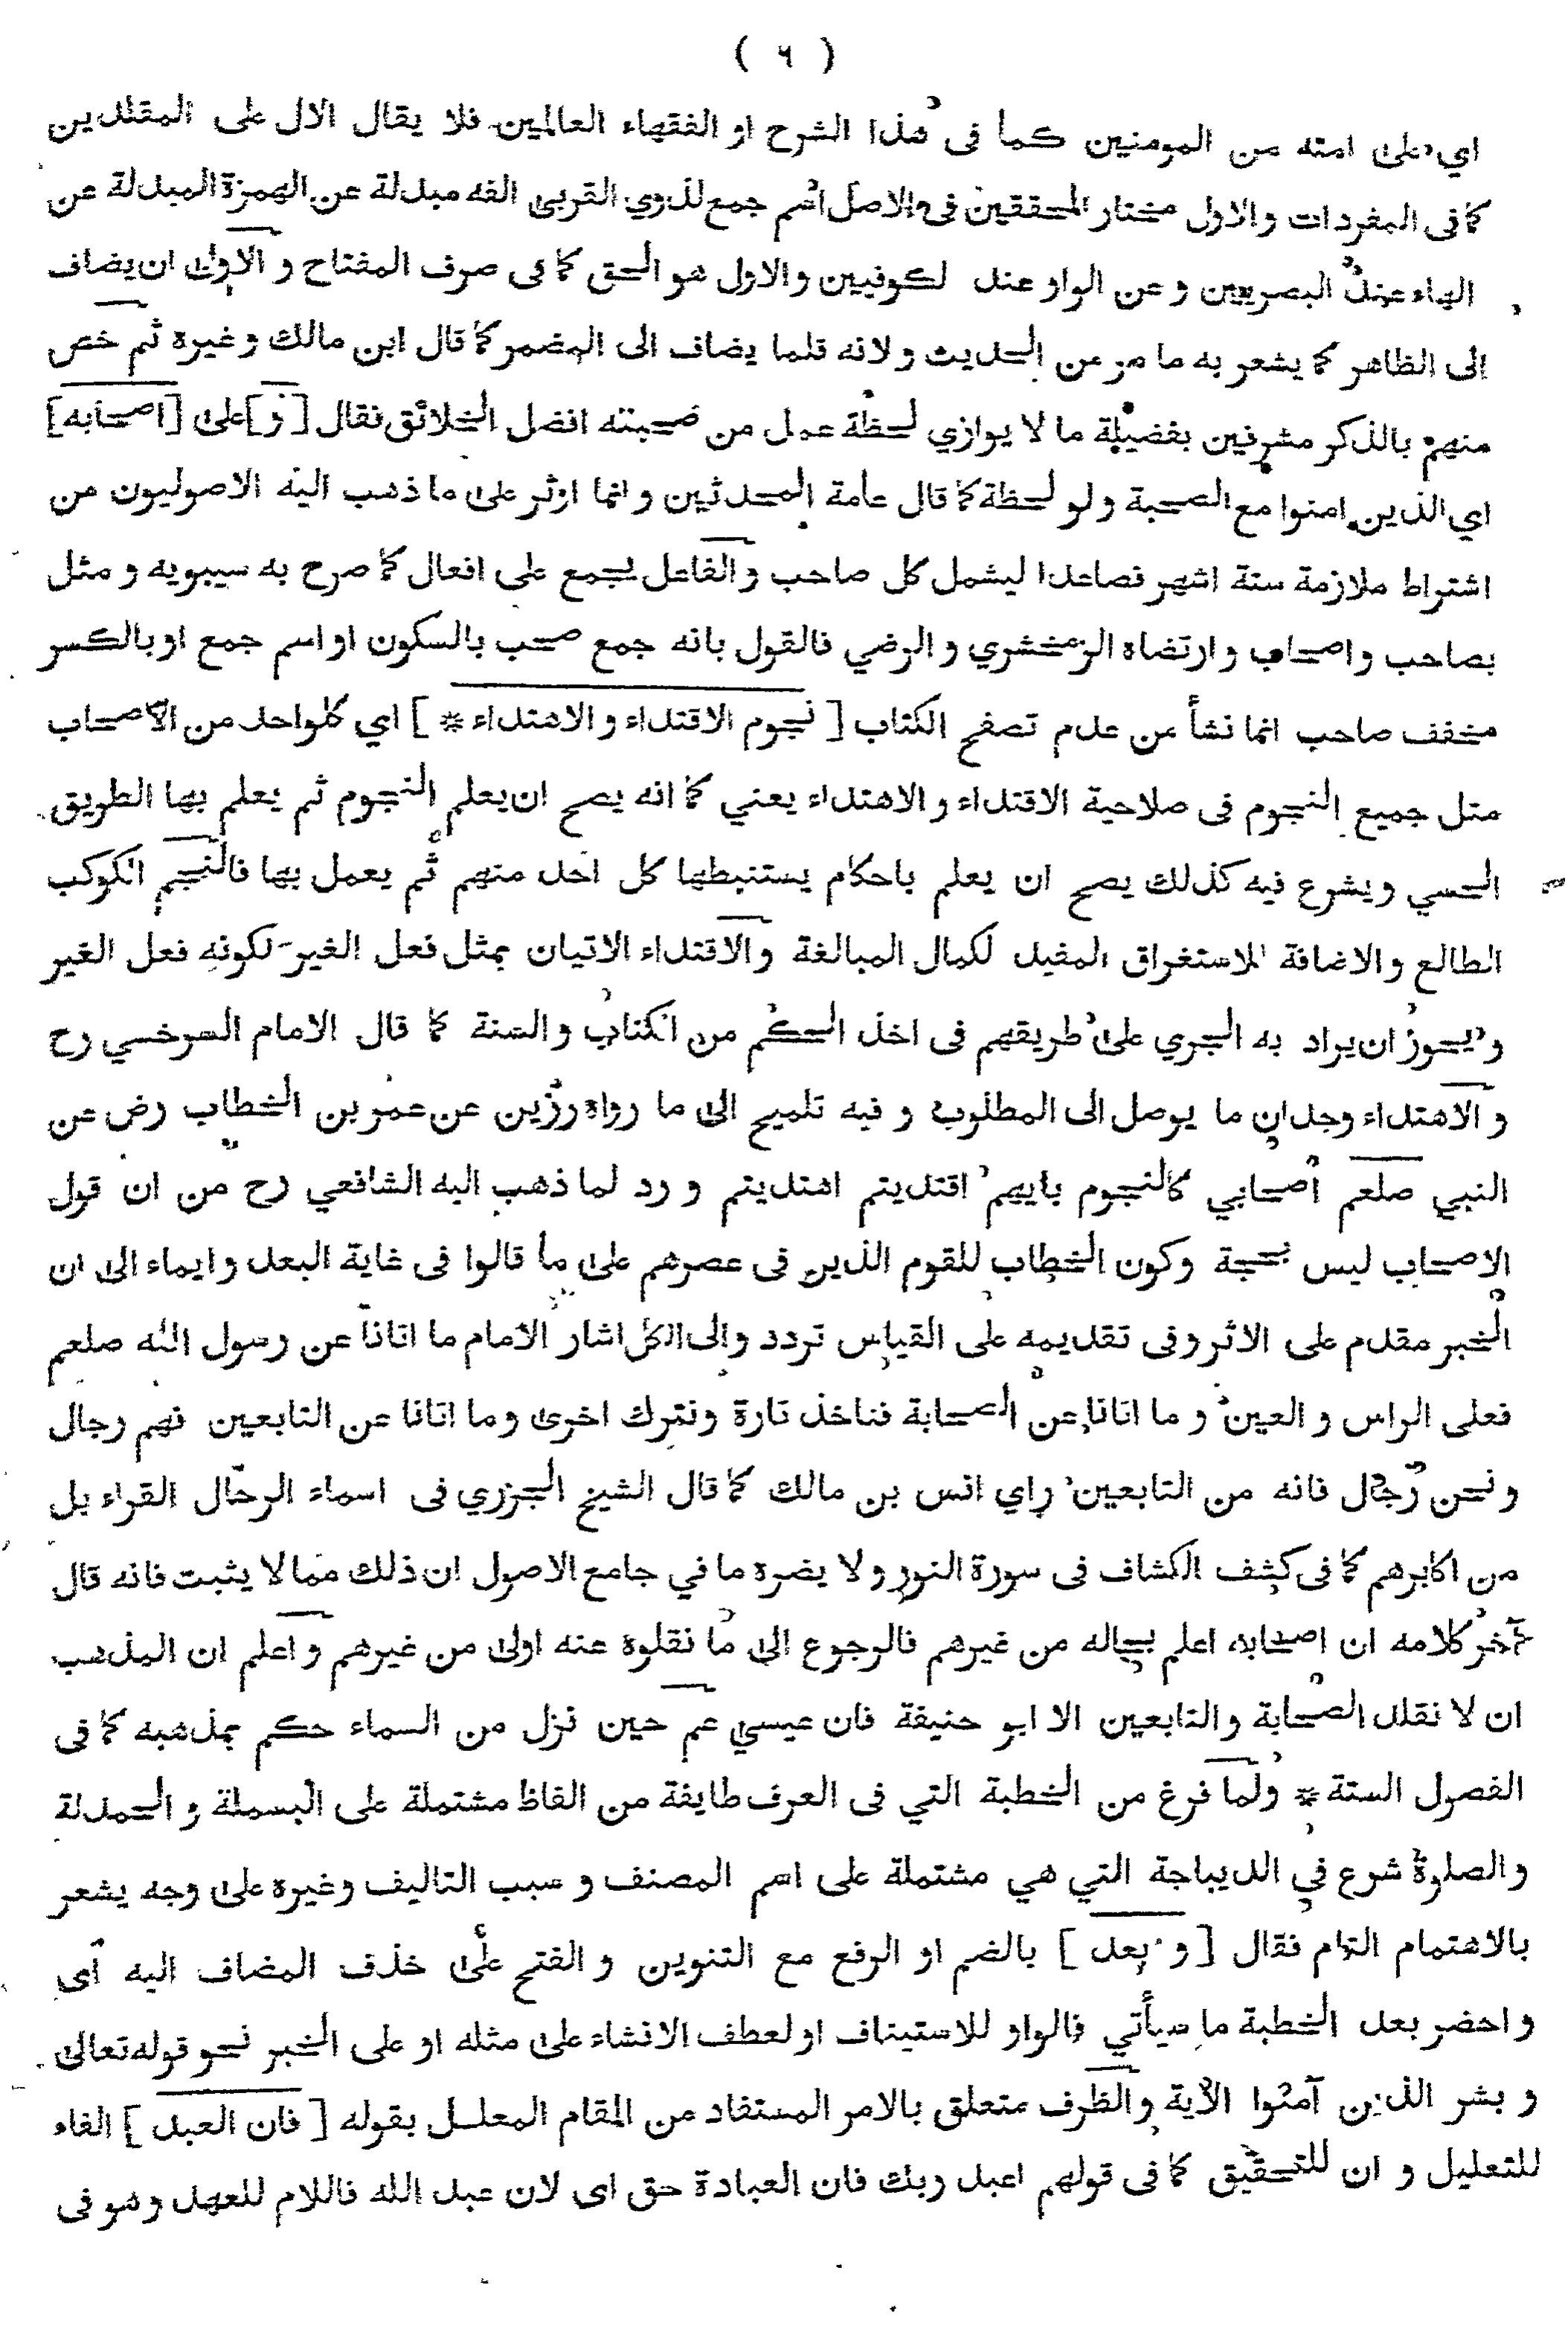 ( ٦ )
اي على امته من المومنين كما فى هذا الشرح او الفقهاء العالمين فلا يقال الال على المقلدين
كما فى المفردات والاول مختار المحققين فى الاصل اسم جمع لذوي القربى الفه مبدلة عن الهمزة المبدلة عن
الهاء عند البصريين و عن الواو عند لكوفيين والاول هو الحق كما فى صرف المفتاح و الاولى ان يضاف
الى الظاهر كما يشعر به ما مر من الحديث و لانه قلما يضاف الى المضمر كما قال ابن مالك و غيره ثم خص
منهم بالذكر مشرفين بفضيلة ما لا يوازي لحظة عمل من صحبته افضل الخلائق فقال [ و ] على [ اصحابه ]
اي الذين امنوا مع الصحبة و لو لحظة كما قال عامة المحدثين و انما اوثر على ما ذهب اليه الاصوليون من
اشتراط ملازمة ستة اشهر فصاعدا ليشمل كل صاحب و الفاعل يجمع على افعال كما صرح به سيبويه و مثل
بصاحب و اصحاب و ارتضاه الزمخشري و الرضي فالقول بانه جمع صحب بالسكون او اسم جمع او بالكسر
مخفف صاحب انما نشأ من عدم تصفح الكتاب [ نجوم الاقتداء و الاهتداء * ] اي كلواحد من الاصحاب
مثل جميع النجوم فى صلاحية الاقتداء و الاهتداء يعني كما انه يصح ان يعلم النجوم ثم يعلم بها الطريق
الحسي و يشرع فيه كذلك يصح ان يعلم باحكام يستنبطها كل احد منهم ثم يعمل بها فالنجم الكوكب
الطالع و الاضافة للاستغراق المفيد لكمال المبالغة و الاقتداء الاتيان بمثل فعل الغير لكونه فعل الغير
و يجوز ان يراد به الجري على طريقهم فى اخذ الحكم من الكتاب و السنة كما قال الامام السرخسي رح
و الاهتداء وجدان ما يوصل الى المطلوب و فيه تلميح الى ما رواه رزين عن عمر بن الخطاب رض عن
النبي صلعم اصحابي كالنجوم بايهم اقتديتم اهتديتم و رد لما ذهب اليه الشافعي رح من ان قول
الاصحاب ليس بحجة وكون الخطاب للقوم الذين فى عصرهم على ما قالوا فى غاية البعد و ايماء الى ان
الخبر مقدم على الاثر وفى تقديمه على القياس تردد والى الكل اشار الامام ما اتانا عن رسول الله صلعم
فعلى الراس و العين و ما اتانا عن الصحابة فناخذ تارة ونترك اخرى وما اتانا عن التابعين فهم رجال
و نحن رجال فانه من التابعين راي انس بن مالك كما قال الشيخ الجزري فى اسماء الرجال القراء بل
من اكابرهم كما فى كشف الكشاف فى سورة النور و لا يضره ما في جامع الاصول ان ذلك مما لا يثبت فانه قال
آخر كلامه ان اصحابه اعلم بحاله من غيرهم فالرجوع الى ما نقلوه عنه اولى من غيرهم و اعلم ان المذهب
ان لا نقلد الصحابة و التابعين الا ابو حنيفة فان عيسي عم حين نزل من السماء حكم بمذهبه كما فى
الفصول الستة * ولما فرغ من الخطبة التي فى العرف طايفة من الفاظ مشتملة على البسملة و الحمدلة
والصلوة شرع في الديباجة التي هي مشتملة على اسم المصنف و سبب التاليف وغيره على وجه يشعر
بالاهتمام التام فقال [ و بعد ] بالضم او الرفع مع التنوين و الفتح على حذف المضاف اليه اى
و احضر بعد الخطبة ما سيأتي فالواو للاستيناف او لعطف الانشاء على مثله او على الخبر نحو قوله تعالى
و بشر الذين آمنوا الآية والظرف متعلق بالامر المستفاد من المقام المعلل بقوله [ فان العبد ] الفاء
للتعليل و ان للتحقيق كما فى قولهم اعبد ربك فان العبادة حق اى لان عبد الله فاللام للعهد وهو فى